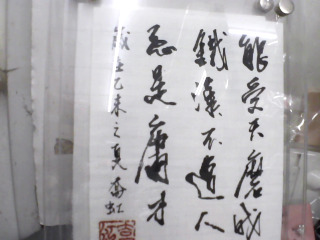 能受天磨成
鐵漢不遭人
忌是庸才
歲在乙未之夏